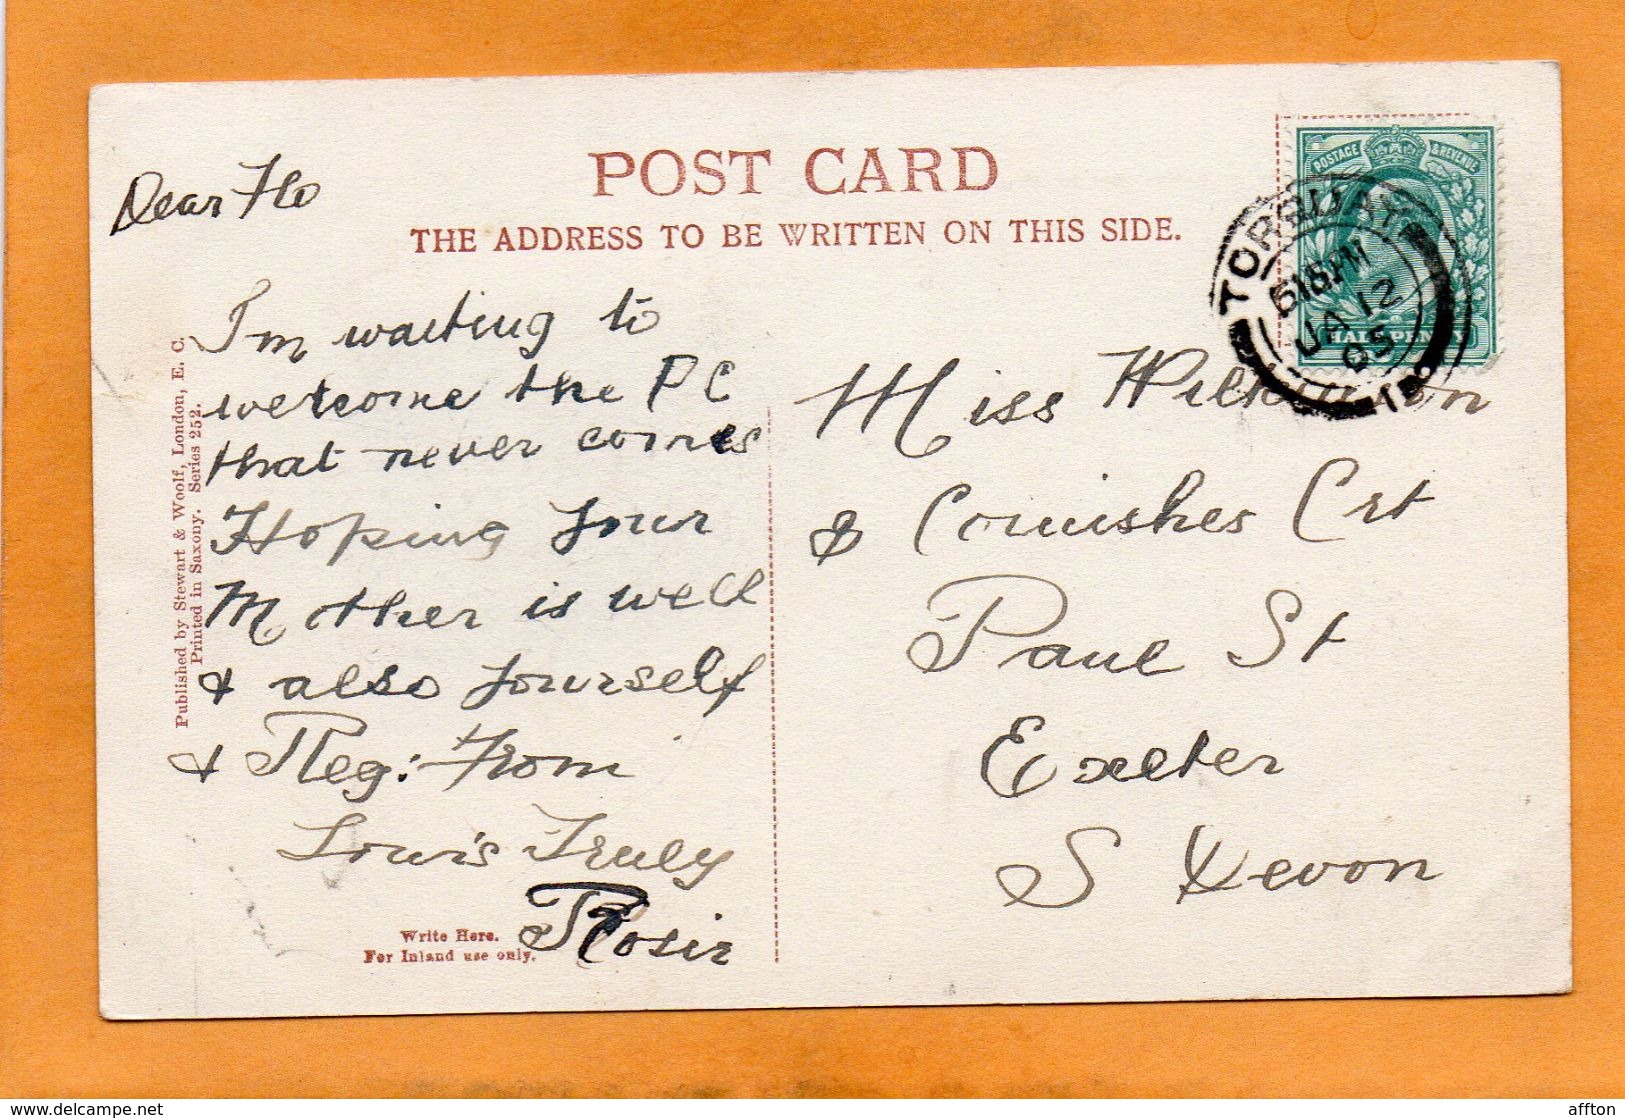 POST CARD
THE ADDRESS TO BE WRITTEN ON THIS SIDE.
Dear Flo
I'm waiting to
welcome the PC
that never comes
Hoping your
Mother is well
& also yourself
& Reg: From
Yours Truly
Rosie
Write Here.
For Inland use only.
Published by Stewart & Woolf, London, E. C.
Printed in Saxony. Series 252.
POSTAGE & REVENUE
HALFPENNY
TORQUAY
JA 12
05
Miss Wilkinson
8 Cornishes Crt
Paul St
Exeter
S Devon
delcampe.net
affton